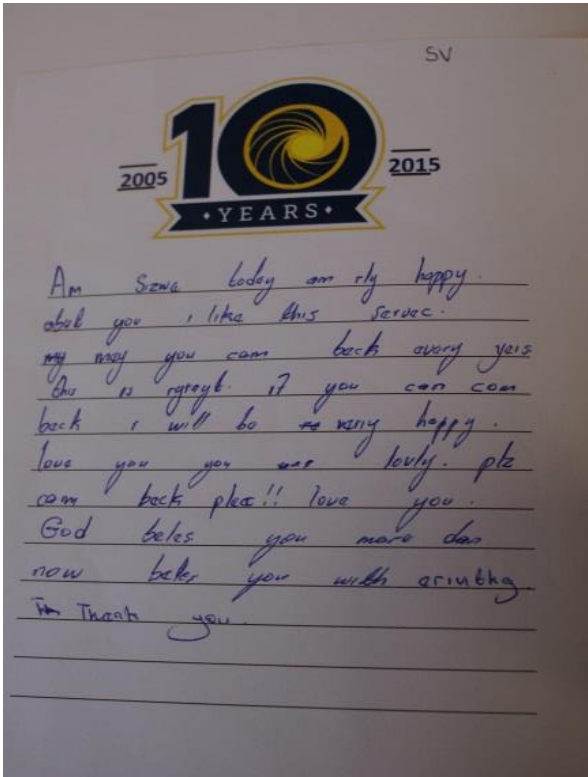 SV
10
2005
2015
YEARS
Am Sizwe today am rly happy.
abut you i like this servec.
may you cam back avary yeis
is if you can com
back i will be very happy.
love you you lovly. plz
cam back pleez!! love you.
God beles you more dan
now beles you with
Thank you.